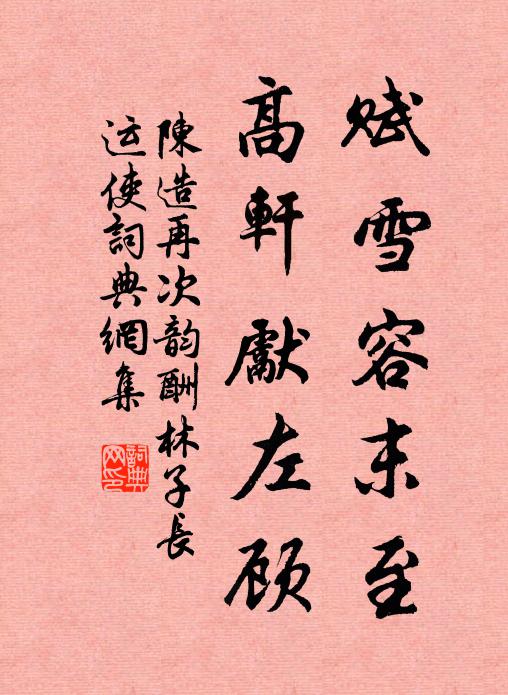 赋雪容末至
高軒獻左顾
陳造再次韵酬林子長
运使詞典網集
詞典网印